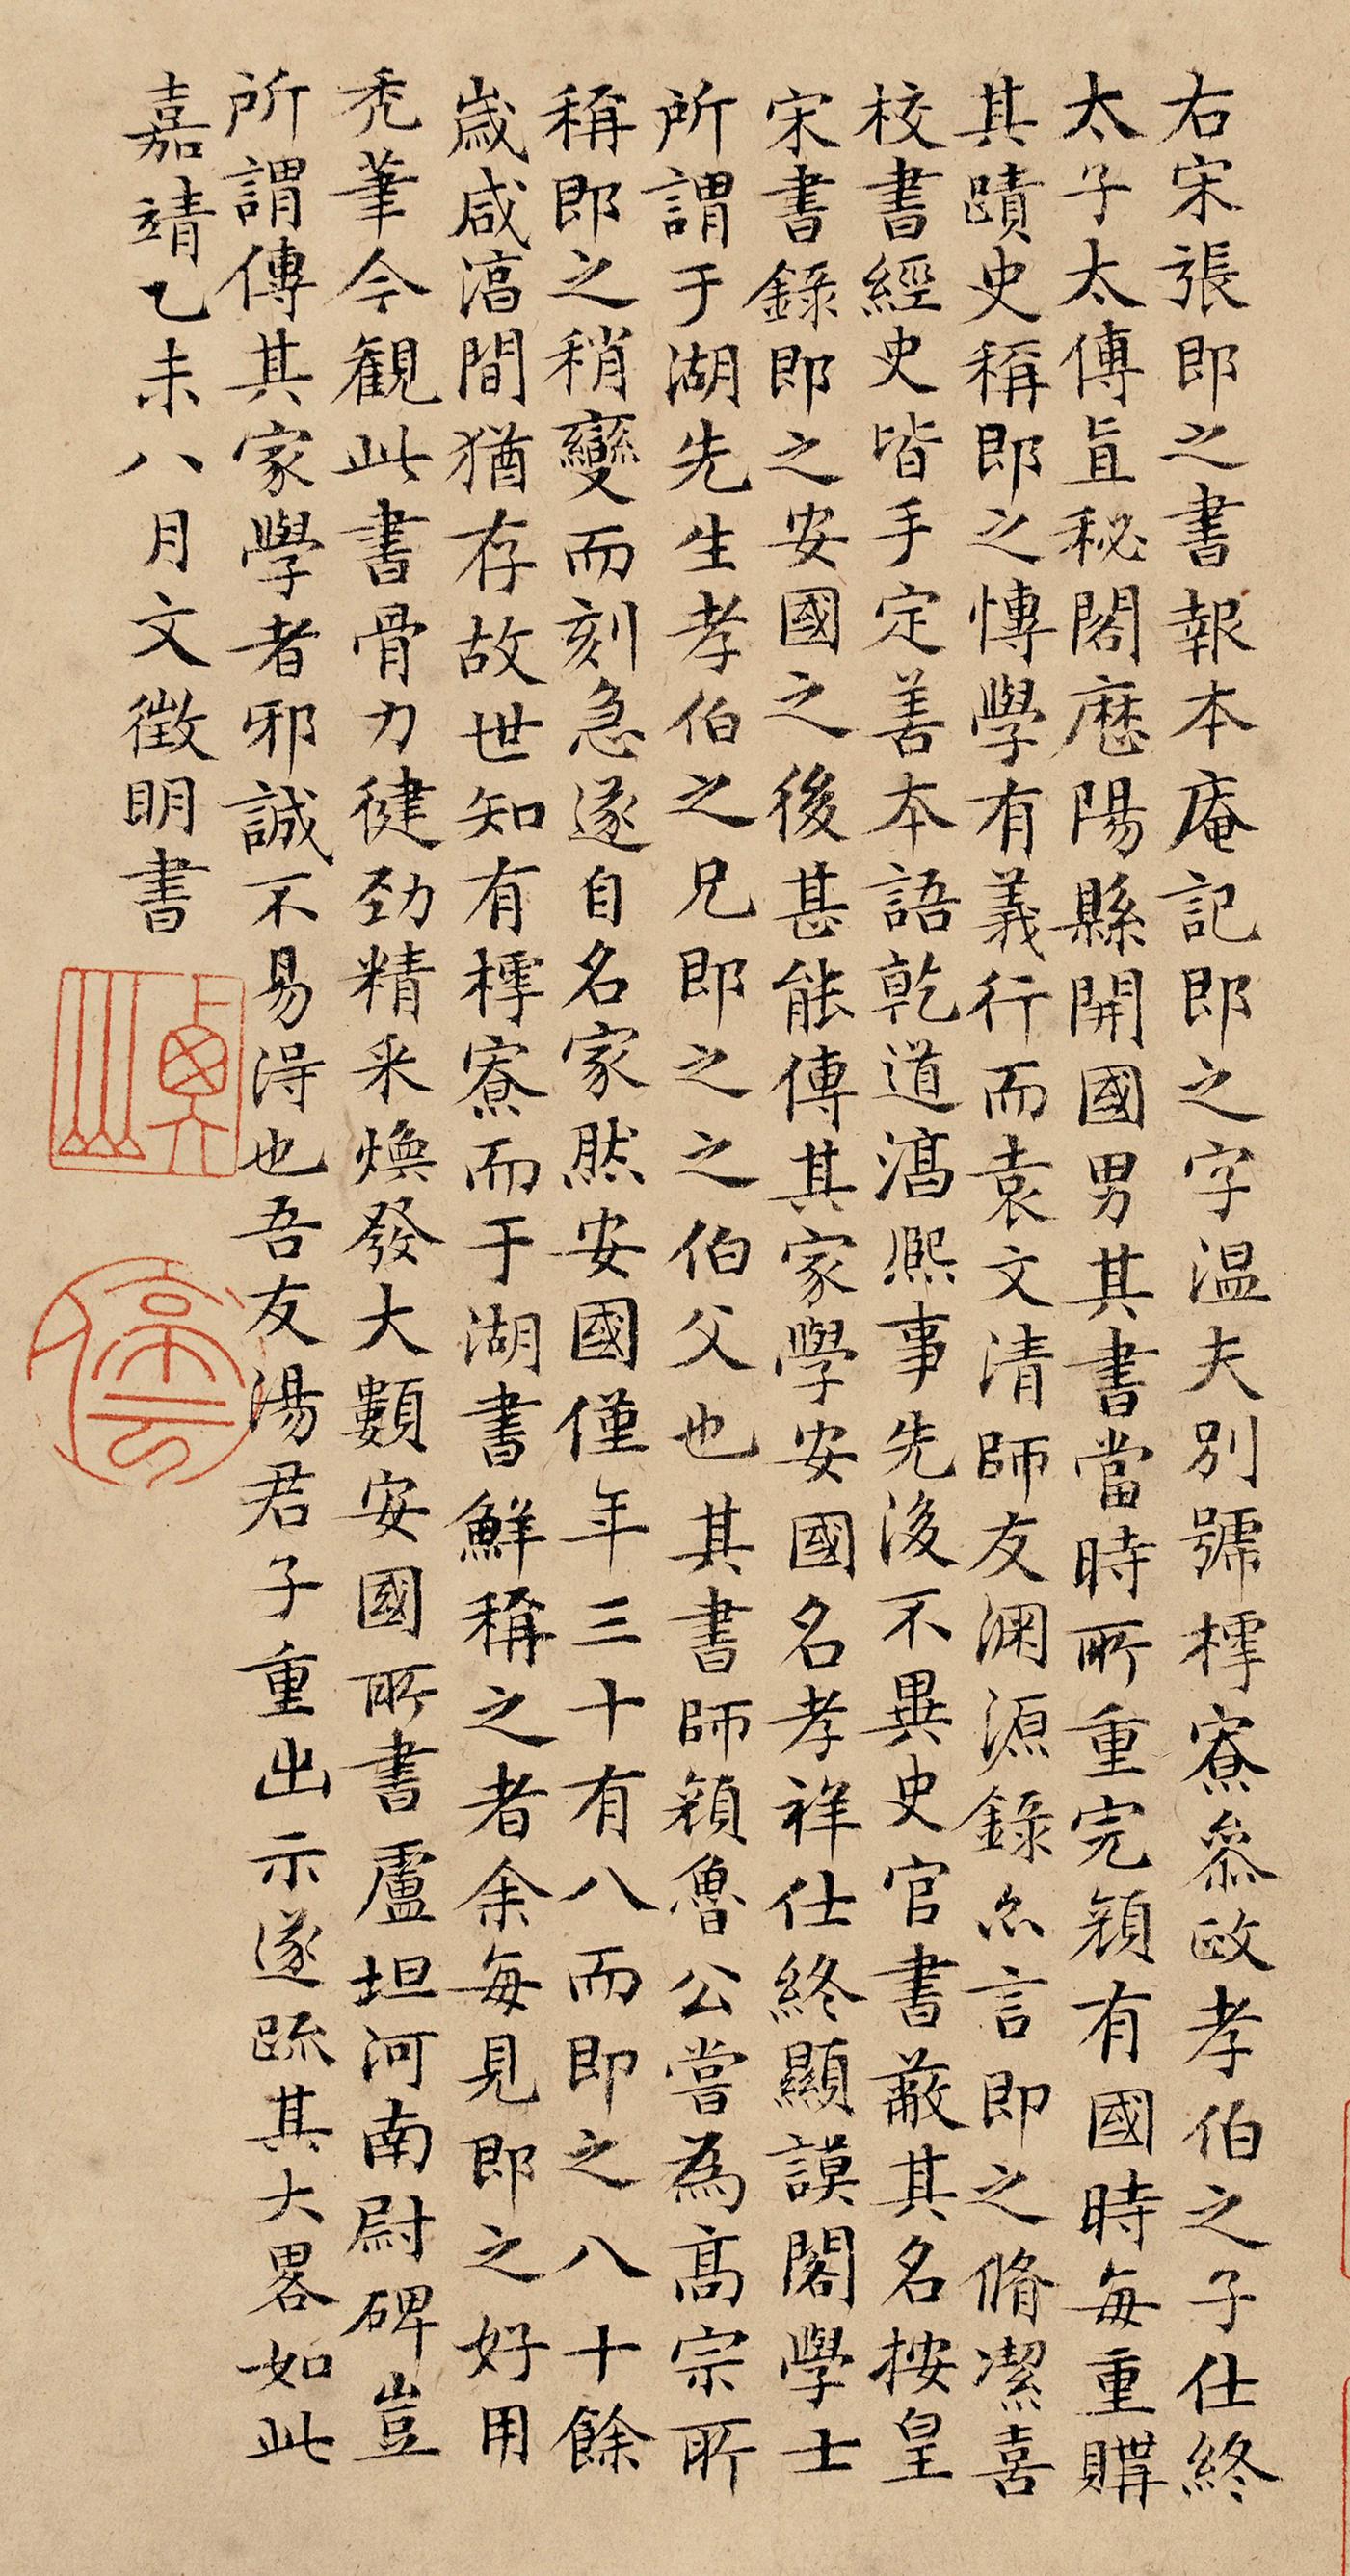 右宋張即之書報本庵記即之字温夫別號樗寮叅政孝伯之子仕終
太子太傅直秘閣歷陽縣開國男其書當時所重完顏有國時每重購
其蹟史稱即之愽學有義行而袁文清師友淵源錄亦言即之脩潔喜
校書經史皆手定善本語乾道淳熈事先後不異史官書蔽其名按皇
宋書錄即之安國之後甚能傳其家學安國名孝祥仕終顯謨閣學士
所謂于湖先生孝伯之兄即之之伯父也其書師顏魯公嘗為高宗所
稱即之稍變而刻急遂自名家然安國僅年三十有八而即之八十餘
歲咸淳間猶存故世知有樗寮而于湖書鮮稱之者余每見即之好用
禿筆今觀此書骨力健勁精采煥發大類安國所書盧坦河南尉碑豈
所謂傳其家學者邪誠不易得也吾友湯君子重出示遂疏其大畧如此
嘉靖乙未八月文徵明書
停雲